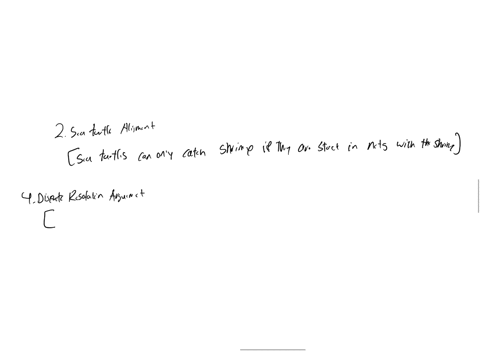 2. Sea turtle Aliment
[Sea turtles can only catch shrimp if they are stuck in nets with the shrimp]
4. Dispute Resolution Argument
[